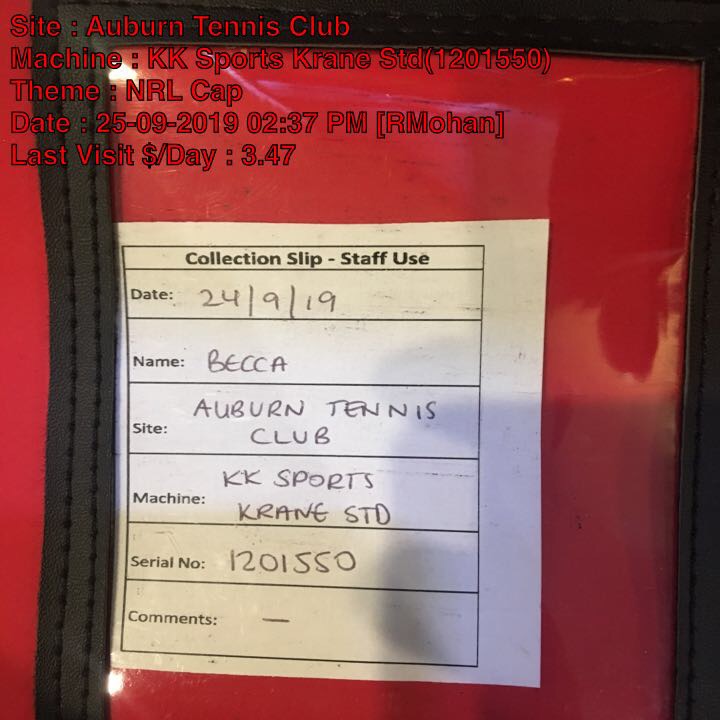 Site : Auburn Tennis Club
Machine : KK Sports Krane Std(1201550)
Theme : NRL Cap
Date : 25-09-2019 02:37 PM [RMohan]
Last Visit $/Day : 3.47
Collection Slip - Staff Use
Date: 24/9/19
Name: BECCA
Site: AUBURN TENNIS
CLUB
Machine: KK SPORTS
KRANE STD
Serial No: 1201550
Comments: —